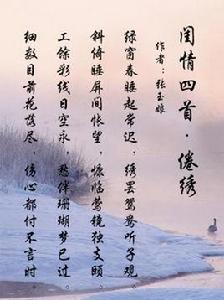 闺情四首·倦绣
作者：张玉娘
绿窗春睡起常迟，绣罢鸳鸯听子规。
斜倚睡屏间怅望，慵临鸾镜独支颐。
工馀彩线日空永，愁伴珊瑚梦已过。
细数目前花落尽，伤心都付不言时。